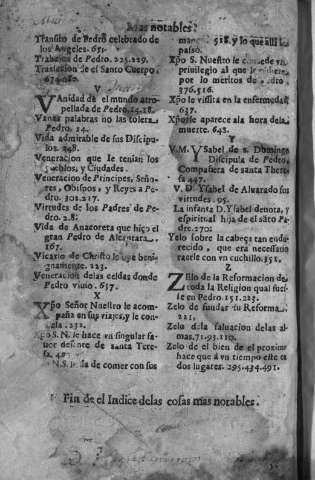 Mas notables.
Transito de Pedro celebrado de
los Angeles. 651.
Trabajos de Pedro. 225.229.
Translacion de el Santo Cuerpo.
674.680.
V
VAnidad de el mundo atro-
pellada de Pedro. 14.18.
Vanas palabras no las tolera
Pedro. 14.
Vida admirable de sus Discipu-
los. 248.
Veneracion que le tenian los
pueblos, y Ciudades.
Veneracion de Principes, Seño-
res, Obispos, y Reyes a Pe-
dro. 302.217.
Virtudes de los Padres de Pe-
dro. 2.8.
Vida de Anacoreta que hiço el
gran Pedro de Alcantara.
167.
Vicario de Christo le oye beni-
gnamente. 223.
Veneracion de las celdas donde
Pedro viuio. 617.
X
XPo Señor Nuestro le acom-
paña en sus viajes, y le con-
suela. 252.
Xpo S. N. le hace vn singular fa-
uor delante de santa Tere-
sa. 40
N.S. le da de comer con sus
manos. 518. y lo que alli
passó.
Xpo S. Nuestro le concede vn
priuilegio al que le pidiere
por lo meritos de Pedro.
376.516.
Xpo le visita en la enfermedad
637.
Xpo le aparece ala hora dela
muerte. 648.
Y
V. M. YSabel de s. Domingo
Discipula de Pedro,
Compañera de santa There-
sa 447.
V. D. Ysabel de Aluarado sus
virtudes. 95.
La infanta D. Ysabel deuota, y
espiritual hija de el sãto Pa-
dre. 270.
Yelo sobre la cabeça tan endu-
recido, que era necessario
raerle con vn cuchillo. 351.
Z
ZElo de la Reformacion de
toda la Religion qual fues-
se en Pedro. 151.223.
Zelo de fundar su Reforma.
221.
Zelo dela saluacion de las al-
mas. 71.93.110.
Zelo de el bien de el proximo
hace que à vn tiempo este en
dos lugares. 295.434.491.
Fin de el Indice delas cosas mas notables.